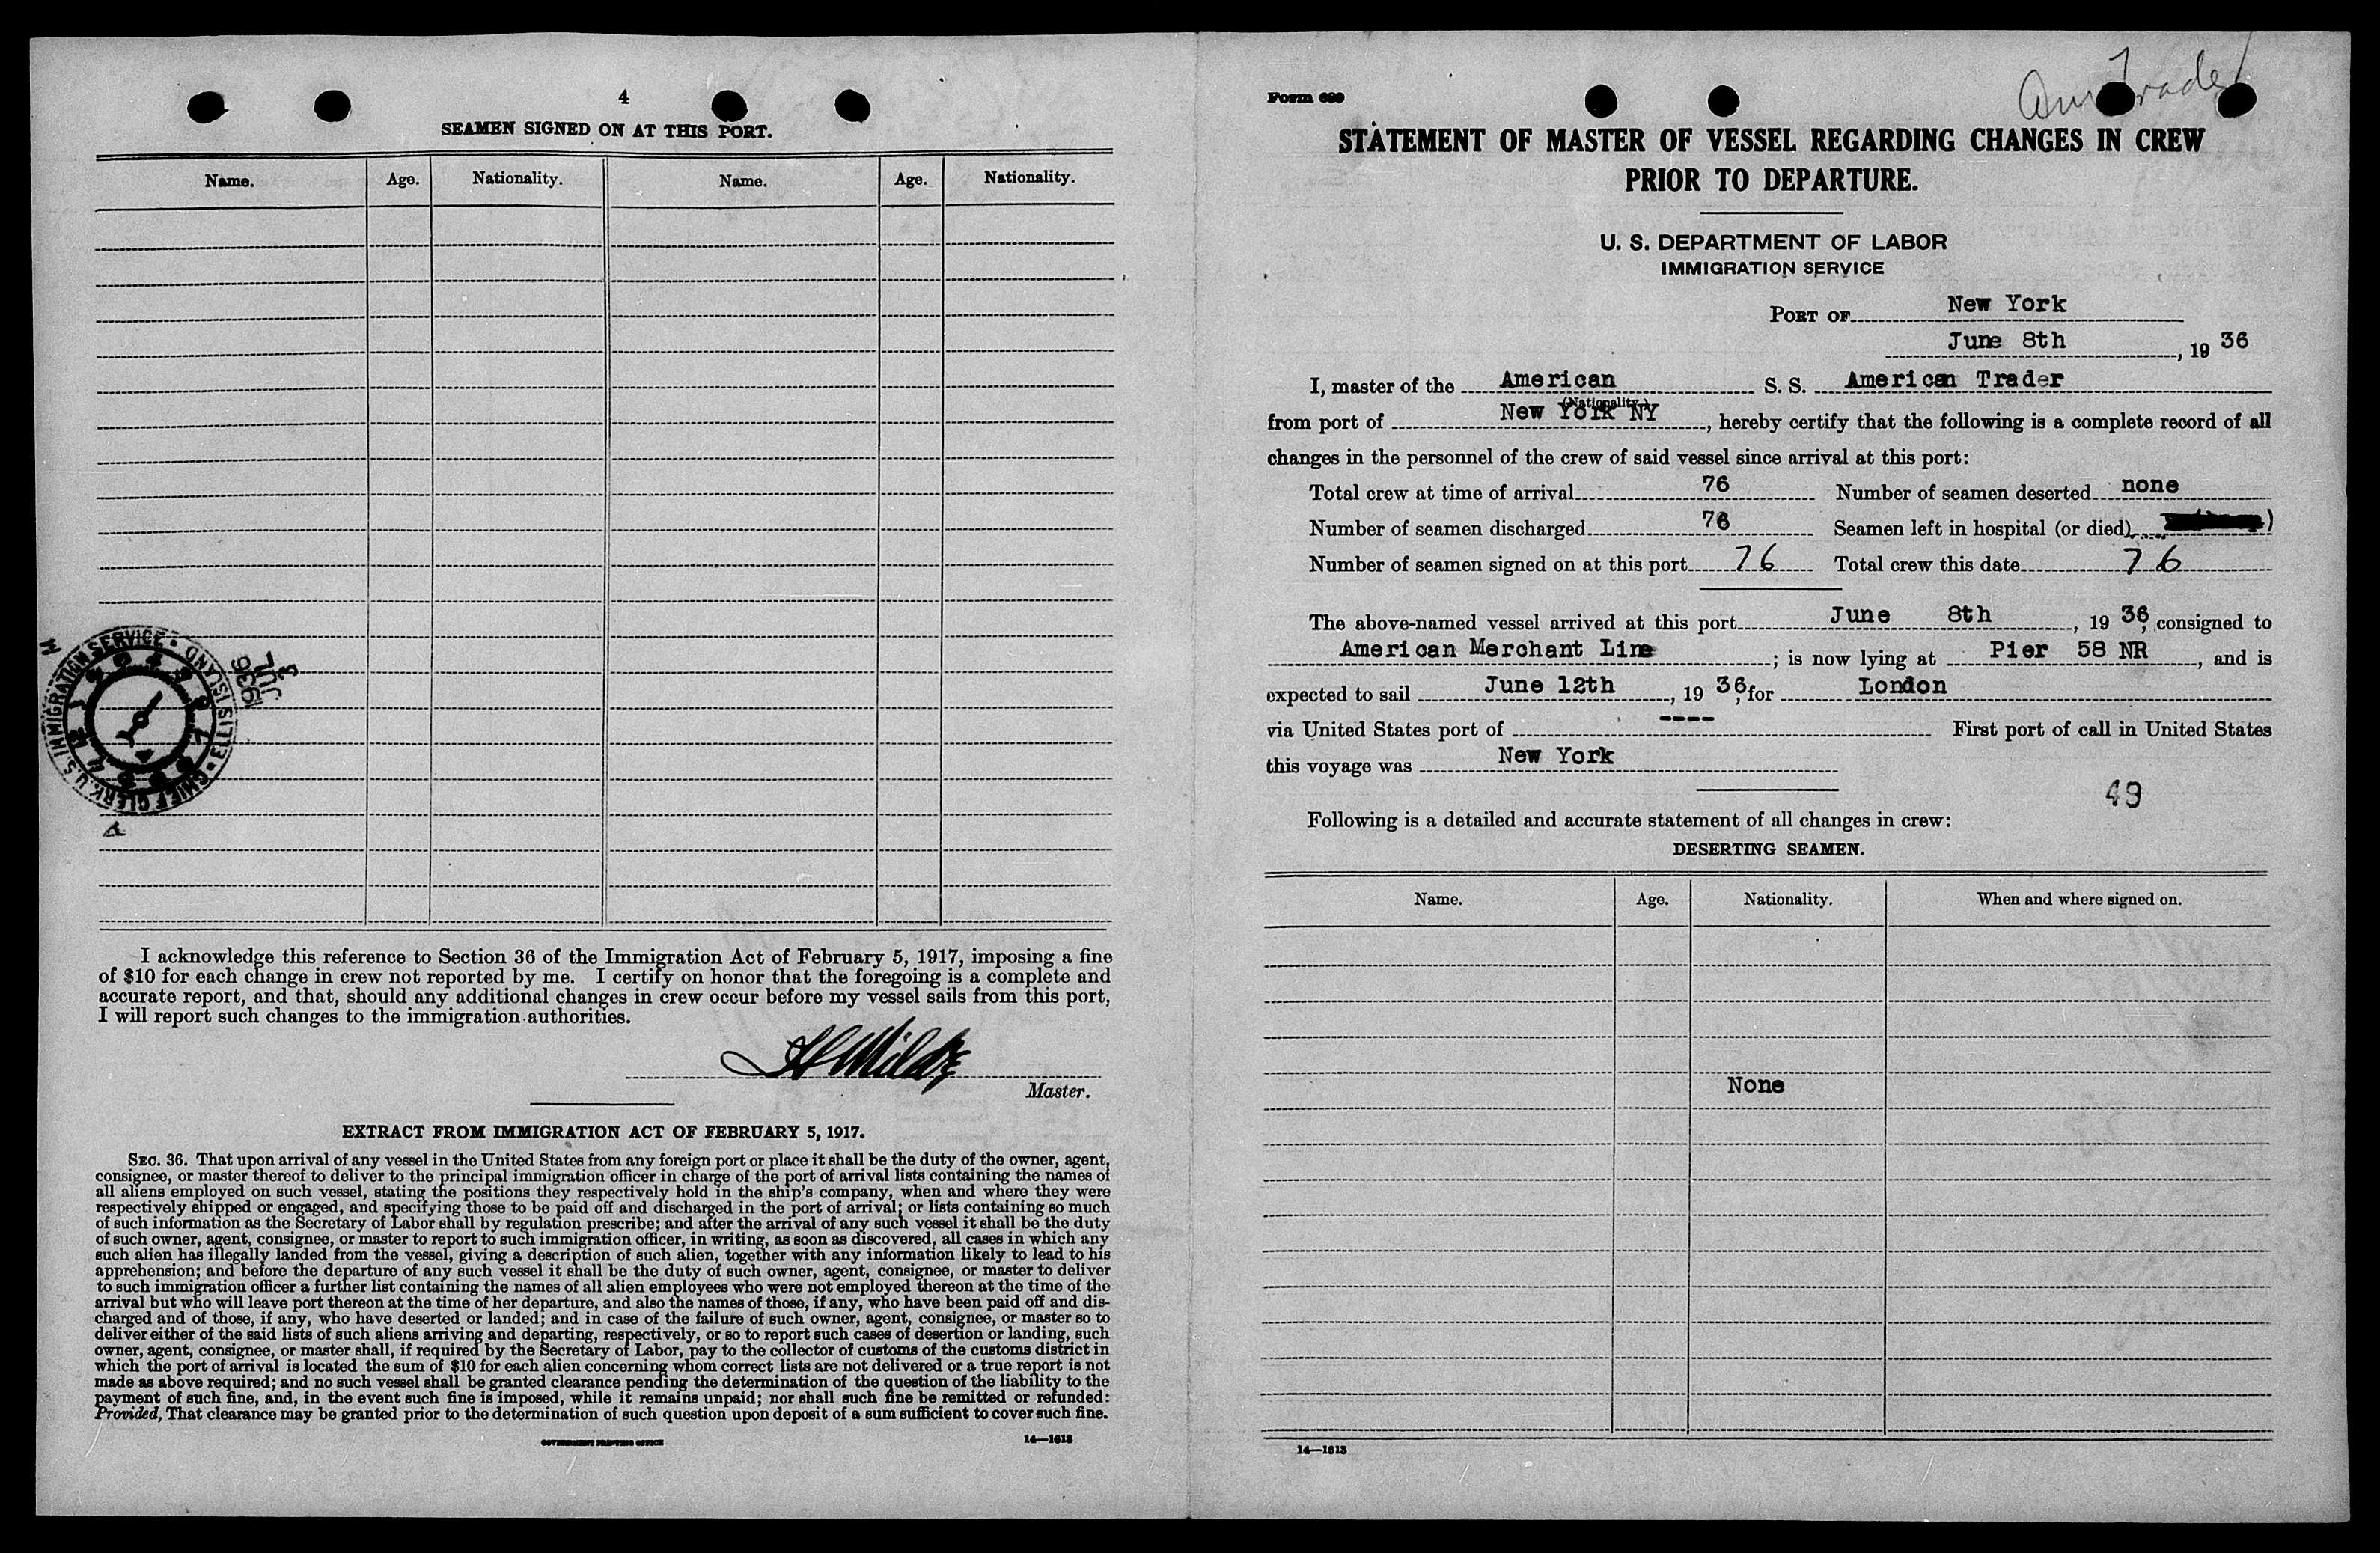 4
SEAMEN SIGNED ON AT THIS PORT.
Name. Age. Nationality. Name. Age. Nationality.
U.S. IMMIGRATION SERVICE • ELLIS ISLAND • CHIEF CLERK
1936 JUL 3
M
A
I acknowledge this reference to Section 36 of the Immigration Act of February 5, 1917, imposing a fine
of $10 for each change in crew not reported by me. I certify on honor that the foregoing is a complete and
accurate report, and that, should any additional changes in crew occur before my vessel sails from this port,
I will report such changes to the immigration authorities.
Master.
EXTRACT FROM IMMIGRATION ACT OF FEBRUARY 5, 1917.
SEC. 36. That upon arrival of any vessel in the United States from any foreign port or place it shall be the duty of the owner, agent,
consignee, or master thereof to deliver to the principal immigration officer in charge of the port of arrival lists containing the names of
all aliens employed on such vessel, stating the positions they respectively hold in the ship's company, when and where they were
respectively shipped or engaged, and specifying those to be paid off and discharged in the port of arrival; or lists containing so much
of such information as the Secretary of Labor shall by regulation prescribe; and after the arrival of any such vessel it shall be the duty
of such owner, agent, consignee, or master to report to such immigration officer, in writing, as soon as discovered, all cases in which any
such alien has illegally landed from the vessel, giving a description of such alien, together with any information likely to lead to his
apprehension; and before the departure of any such vessel it shall be the duty of such owner, agent, consignee, or master to deliver
to such immigration officer a further list containing the names of all alien employees who were not employed thereon at the time of the
arrival but who will leave port thereon at the time of her departure, and also the names of those, if any, who have been paid off and dis-
charged and of those, if any, who have deserted or landed; and in case of the failure of such owner, agent, consignee, or master so to
deliver either of the said lists of such aliens arriving and departing, respectively, or so to report such cases of desertion or landing, such
owner, agent, consignee, or master shall, if required by the Secretary of Labor, pay to the collector of customs of the customs district in
which the port of arrival is located the sum of $10 for each alien concerning whom correct lists are not delivered or a true report is not
made as above required; and no such vessel shall be granted clearance pending the determination of the question of the liability to the
payment of such fine, and, in the event such fine is imposed, while it remains unpaid; nor shall such fine be remitted or refunded:
Provided, That clearance may be granted prior to the determination of such question upon deposit of a sum sufficient to cover such fine.
GOVERNMENT PRINTING OFFICE 14—1613
Am Trader
Form 689
STATEMENT OF MASTER OF VESSEL REGARDING CHANGES IN CREW
PRIOR TO DEPARTURE.
U. S. DEPARTMENT OF LABOR
IMMIGRATION SERVICE
PORT OF New York
June 8th, 19 36
I, master of the American S. S. American Trader
(Nationality.)
from port of New York NY, hereby certify that the following is a complete record of all
changes in the personnel of the crew of said vessel since arrival at this port:
Total crew at time of arrival 76 Number of seamen deserted none
Number of seamen discharged 76 Seamen left in hospital (or died)
Number of seamen signed on at this port 76 Total crew this date 76
The above-named vessel arrived at this port June 8th, 19 36, consigned to
American Merchant Line; is now lying at Pier 58 NR, and is
expected to sail June 12th, 19 36, for London
via United States port of ---- First port of call in United States
this voyage was New York
49
Following is a detailed and accurate statement of all changes in crew:
DESERTING SEAMEN.
Name. Age. Nationality. When and where signed on.
None
14—1613